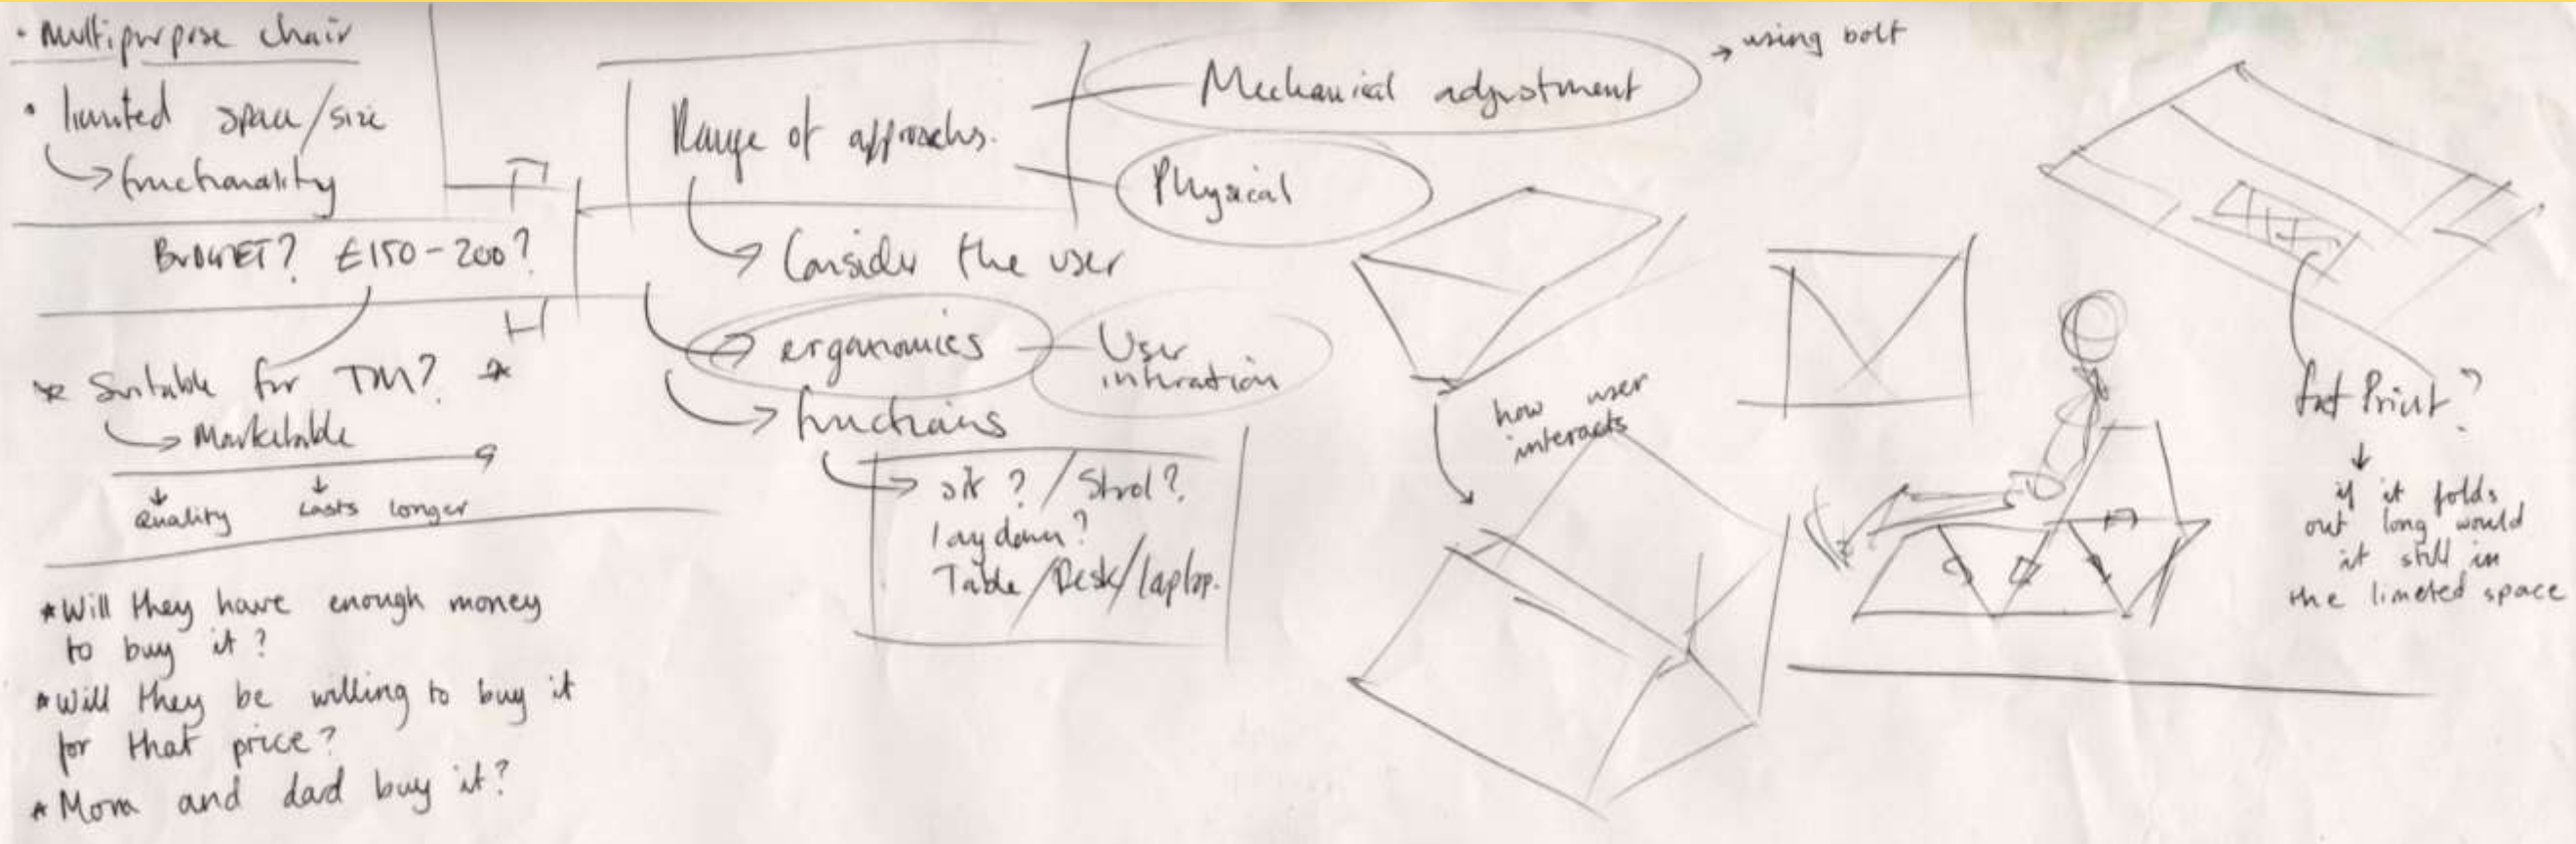 • Multipurpose chair
• limited space/size
functionality
BUDGET? £150-200?
* Suitable for TM? *
Marketable
Quality
Lasts longer
*Will they have enough money
to buy it?
*Will they be willing to buy it
for that price?
*Mom and dad buy it?
Range of approachs.
Mechanical adjustment
using bolt
Physical
Consider the user
erganomics
User
intiration
functions
sit? / Stool?
lay down?
Table/Desk/laptop.
how user
interacts
foot Print?
if it folds
out long would
it still in
the limeted space